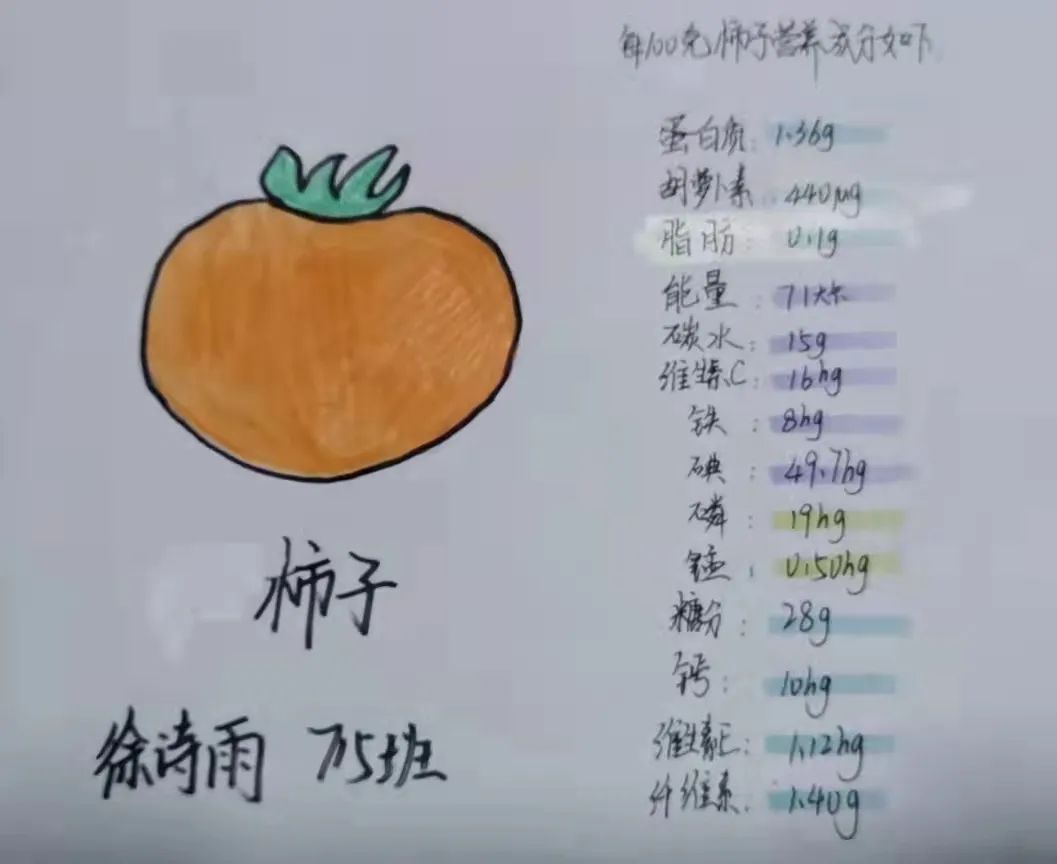 每100克柿子营养成分如下
蛋白质: 1.36g
胡萝卜素 440μg
脂肪: 0.1g
能量: 71大卡
碳水: 15g
维生素C: 16hg
铁: 8hg
碘: 49.7hg
磷: 19hg
锰: 0.50hg
糖分: 28g
钙: 10hg
维生素E: 1.12hg
纤维素: 1.40g
柿子
徐诗雨 715班